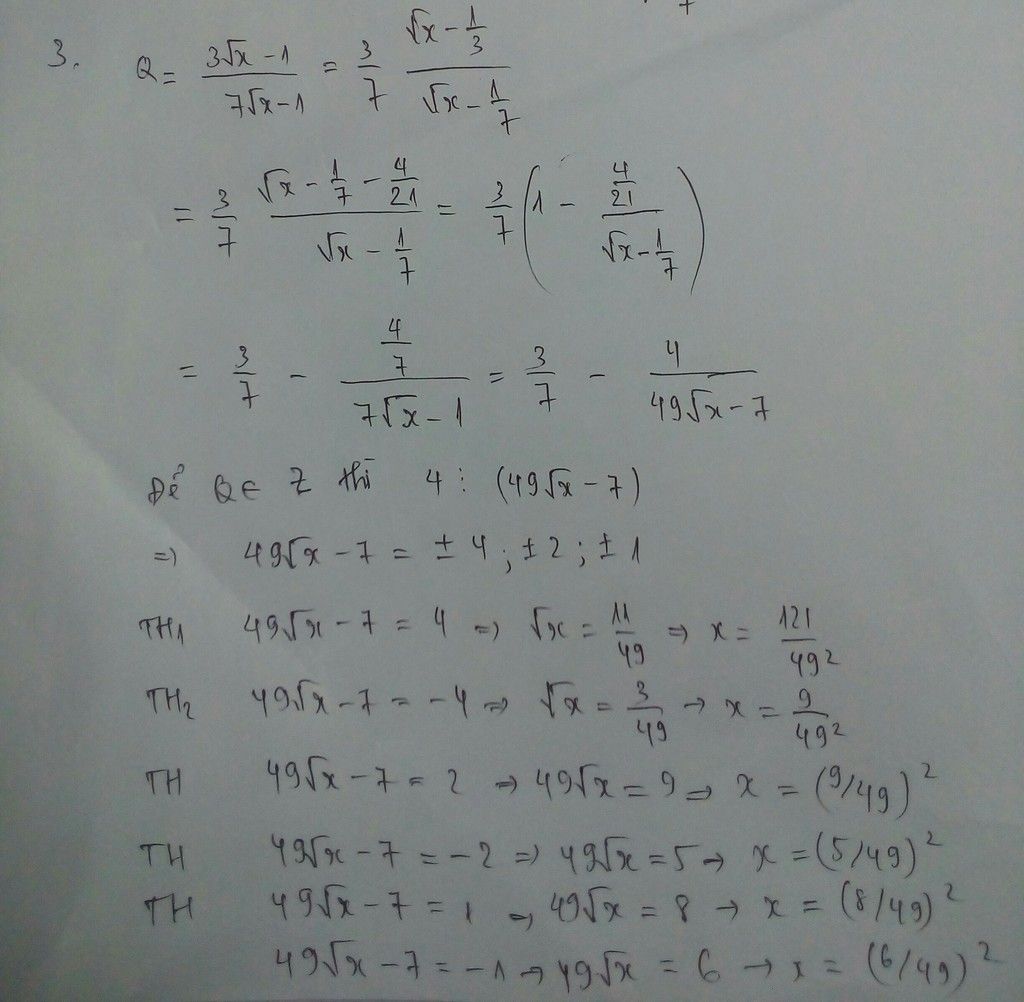 3. Q = \frac{3√x - 1}{7√x - 1} = \frac{3}{7} \frac{√x - \frac{1}{3}}{√x - \frac{1}{7}}
= \frac{3}{7} \frac{√x - \frac{1}{7} - \frac{4}{21}}{√x - \frac{1}{7}} = \frac{3}{7} (1 - \frac{\frac{4}{21}}{√x - \frac{1}{7}})
= \frac{3}{7} - \frac{\frac{4}{7}}{7√x - 1} = \frac{3}{7} - \frac{4}{49√x - 7}
Để Q ∈ Z thì 4 ⋮ (49√x - 7)
=> 49√x - 7 = ± 4 ; ± 2 ; ± 1
TH1 49√x - 7 = 4 => √x = \frac{11}{49} => x = \frac{121}{49²}
TH2 49√x - 7 = -4 => √x = \frac{3}{49} → x = \frac{9}{49²}
TH 49√x - 7 = 2 => 49√x = 9 => x = (9/49)²
TH 49√x - 7 = -2 => 49√x = 5 → x = (5/49)²
TH 49√x - 7 = 1 => 49√x = 8 → x = (8/49)²
49√x - 7 = -1 → 49√x = 6 → x = (6/49)²